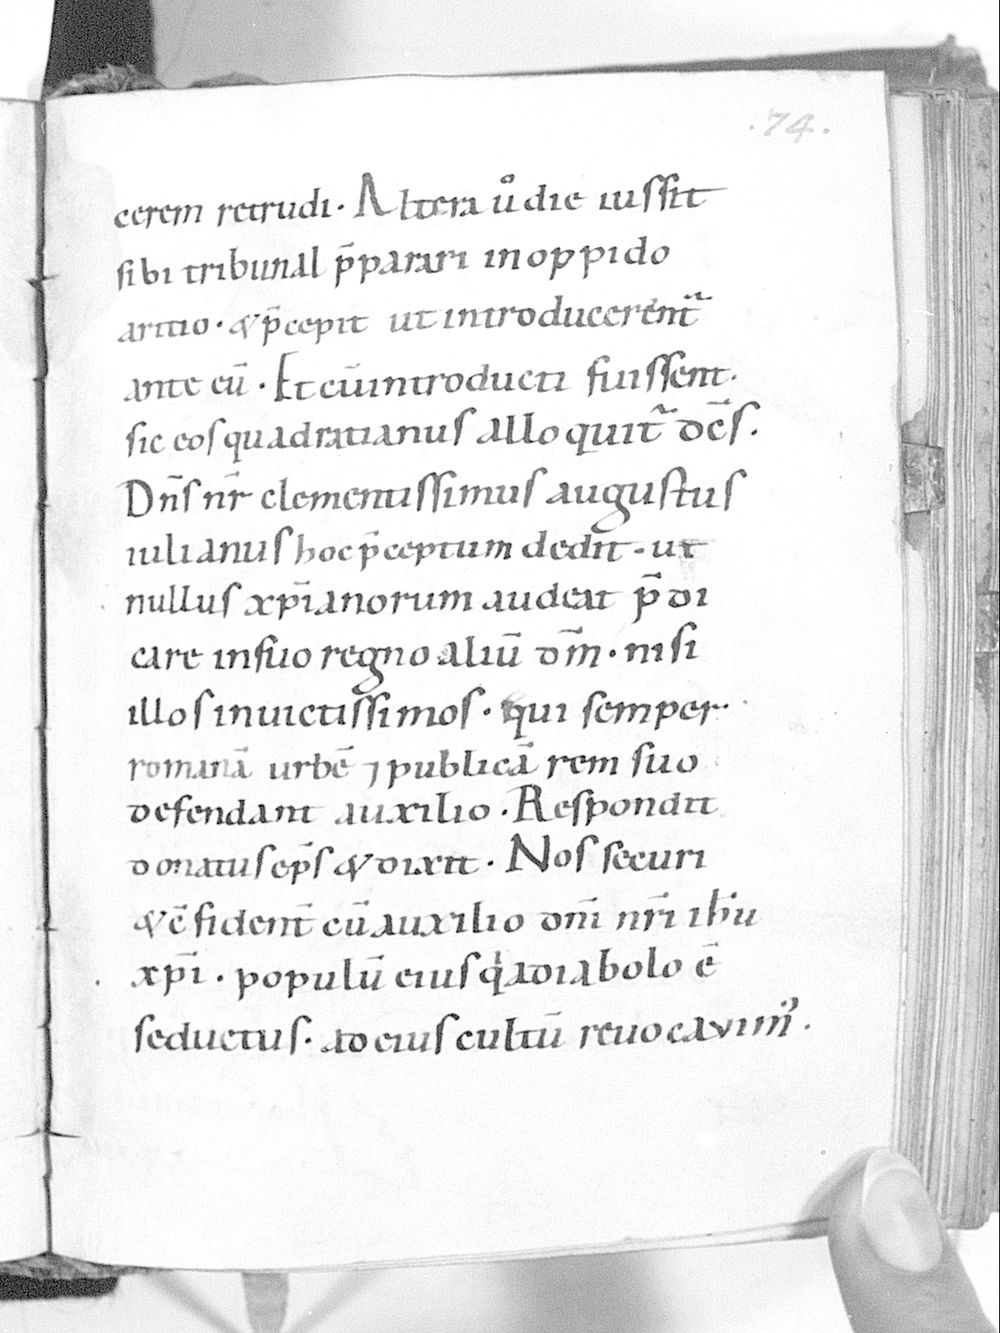 .74.
cerem retrudi. Altera ůdie iussit
sibi tribunal p̄parari inoppido
aritio. &p̄cepit ut introducerent᷑
ante eū. Et cūintroducti fuissent.
sic eos quadratianus alloquit᷑ dc̄s.
Dn̄s nr̄ clementissimus augustus
iulianus hoc p̄ceptum dedit. ut
nullus xp̄ianorum audeat p̄di
care insuo regno aliū dm̄. nisi
illos inuictissimos. qui semper.
romanā urbē ⁊publicā rem suo
defendant auxilio. Respondit
donatus ep̄s & dixit. Nos securi
&c̄fident̄ cū auxilio dn̄i nr̄i ih̄u
xp̄i. populū eius qͥ adiabolo ē
seductus. ad eius cultū reuocauim᷒.